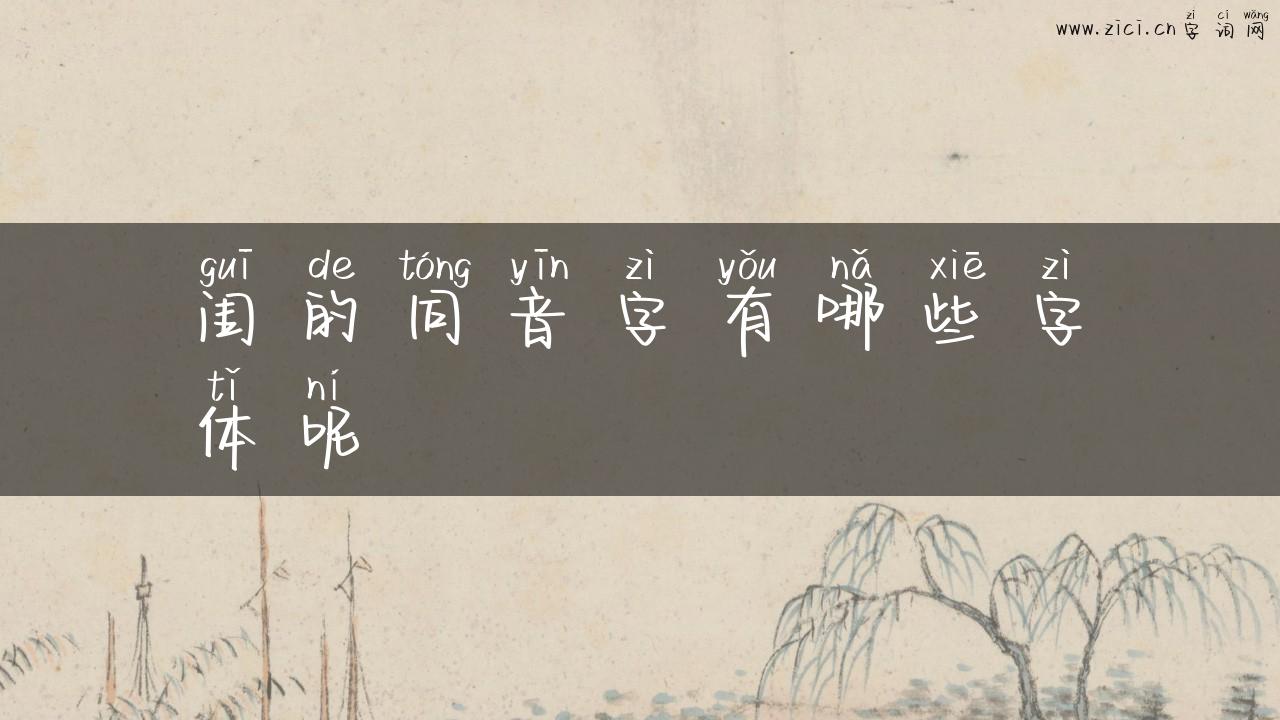 zì cí wǎng
www.zici.cn 字 词 网
guī de tóng yīn zì yǒu nǎ xiē zì
闺 的 同 音 字 有 哪 些 字
tǐ ní
体 呢